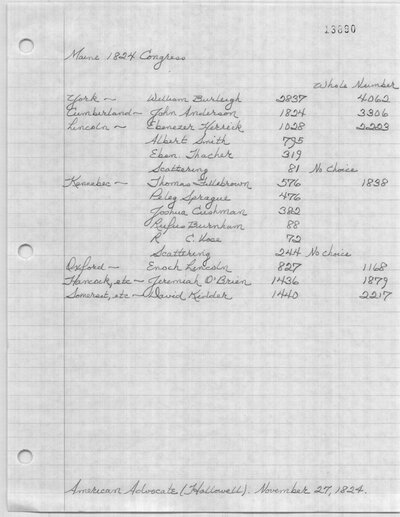 13890
Maine 1824 Congress
Whole Number
York — William Burleigh 2837 4062
Cumberland — John Anderson 1824 3306
Lincoln — Ebenezer Herrick 1028 2223
Albert Smith 795
Eben. Thacher 319
Scattering 81 No choice
Kennebec — Thomas Fillebrown 576 1838
Peleg Sprague 476
Joshua Cushman 382
Rufus Burnham 88
R C. Vose 72
Scattering 244 No choice
Oxford — Enoch Lincoln 827 1168
Hancock, etc — Jeremiah O'Brien 1436 1879
Somerset, etc — David Kidder 1440 2217
American Advocate (Hallowell). November 27, 1824.